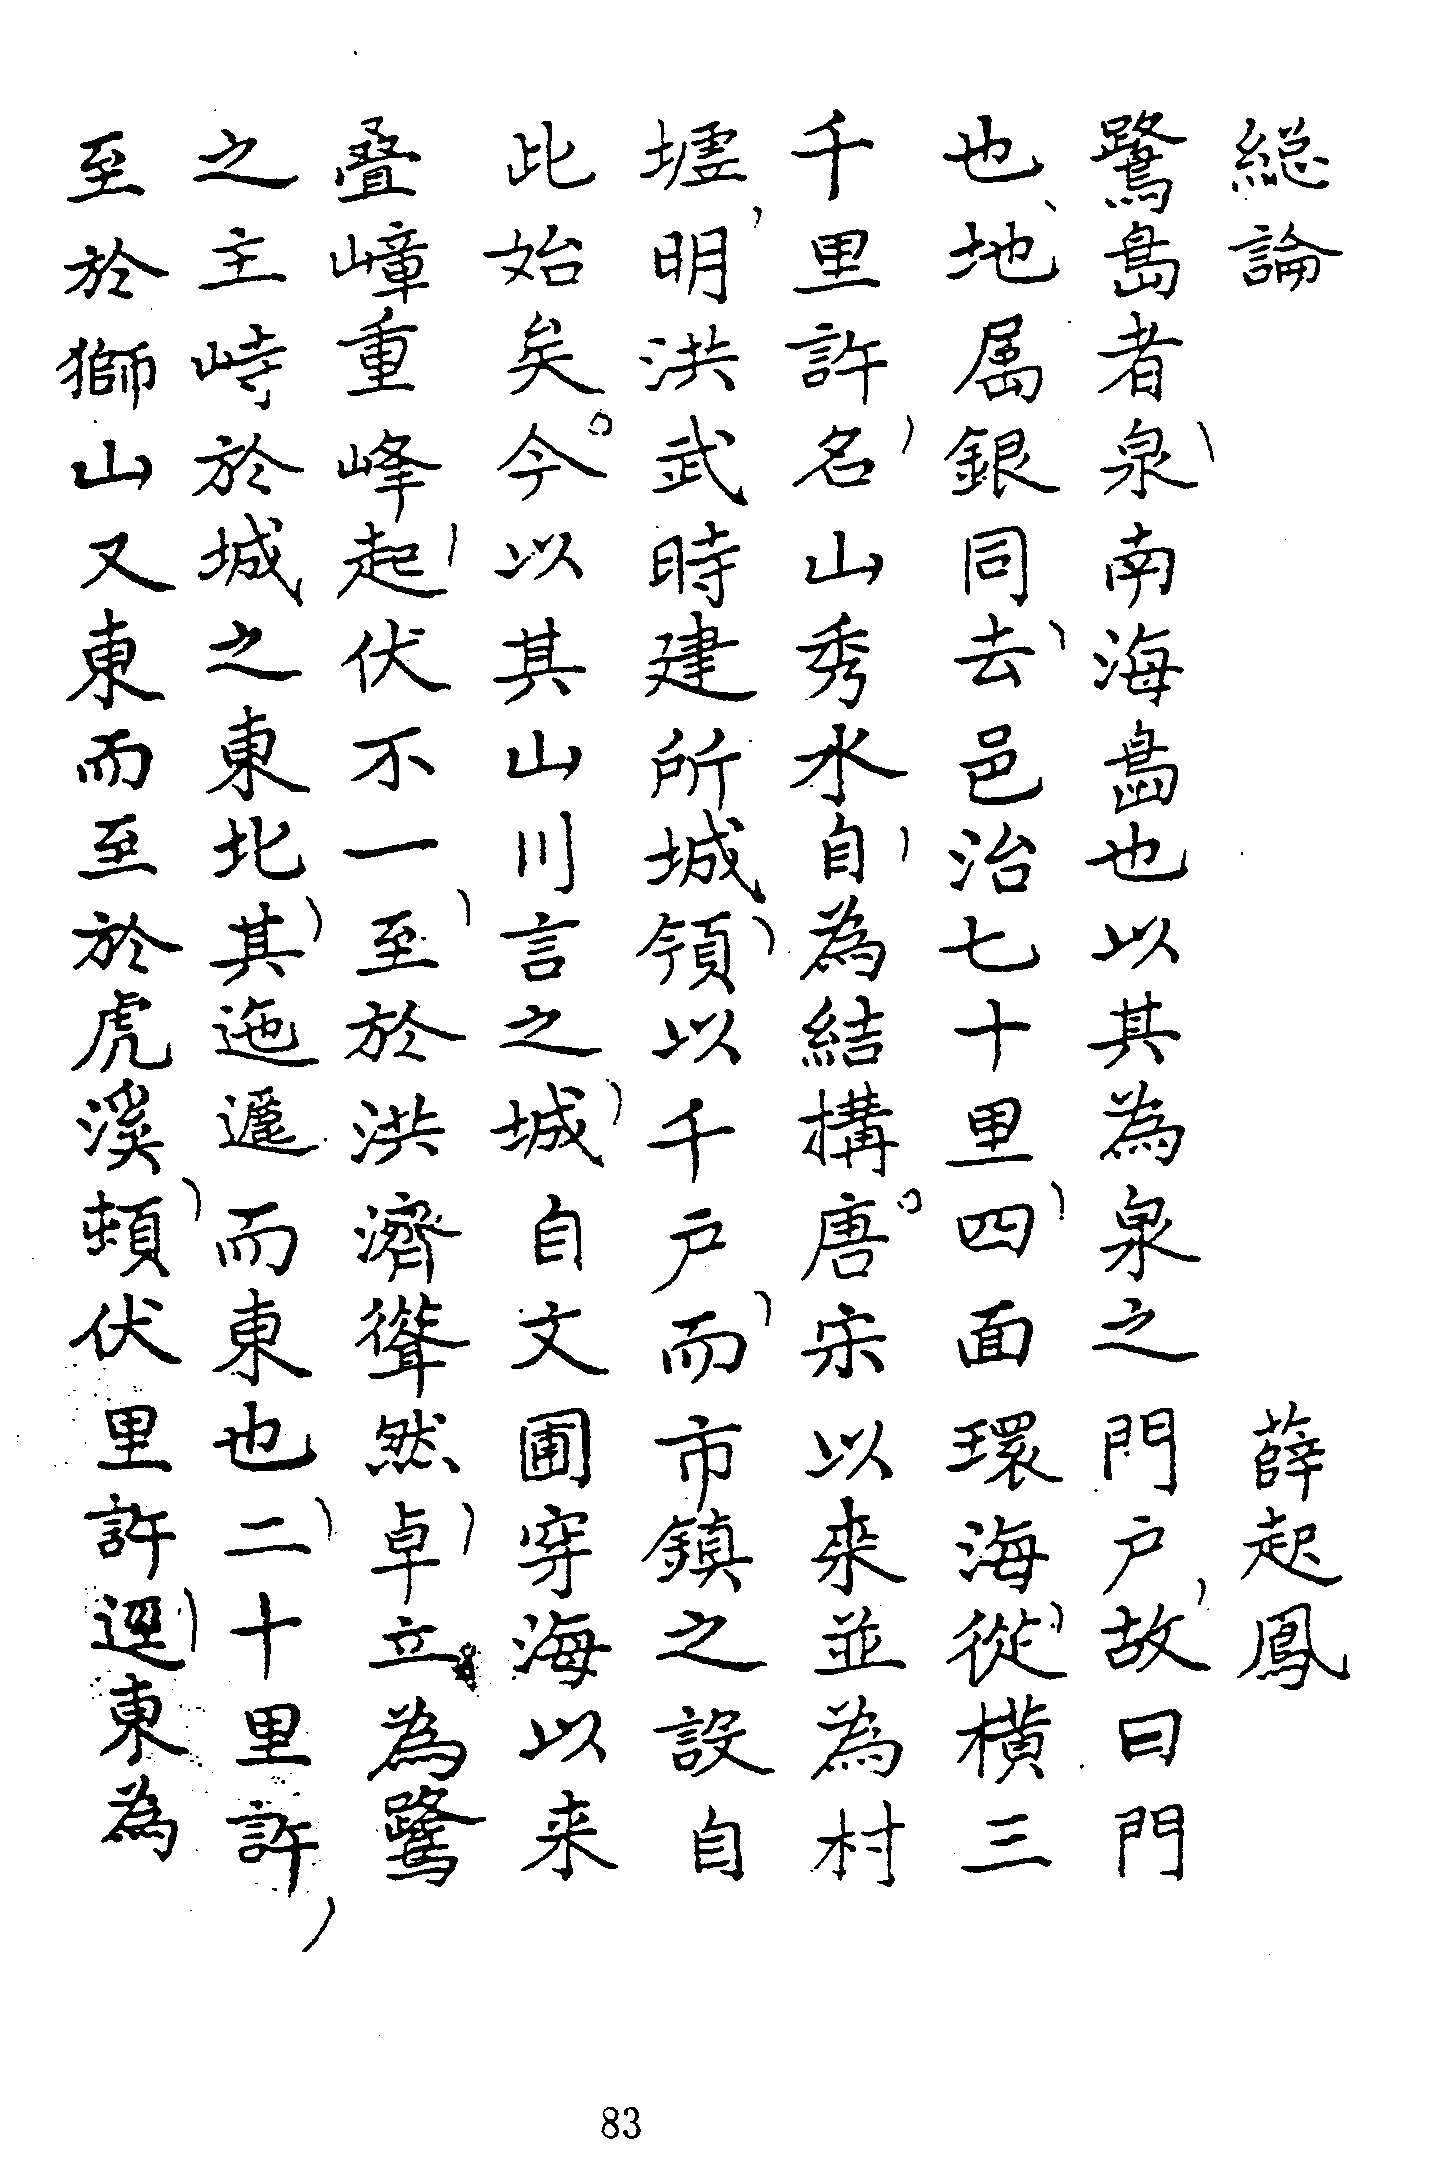 総論　薛起鳳
鷺島者泉南海島也以其為泉之門户故曰門
也地属銀同去邑治七十里四面環海從横三
千里許名山秀水自為結構唐宋以来並為村
墟明洪武時建所城領以千户而市鎮之設自
此始矣今以其山川言之城自文圃穿海以来
叠嶂重峰起伏不一至於洪濟聳然卓立為鷺
之主峙於城之東北其迤邐而東也二十里許
至於獅山又東而至於虎溪頓伏里許迴東為
83